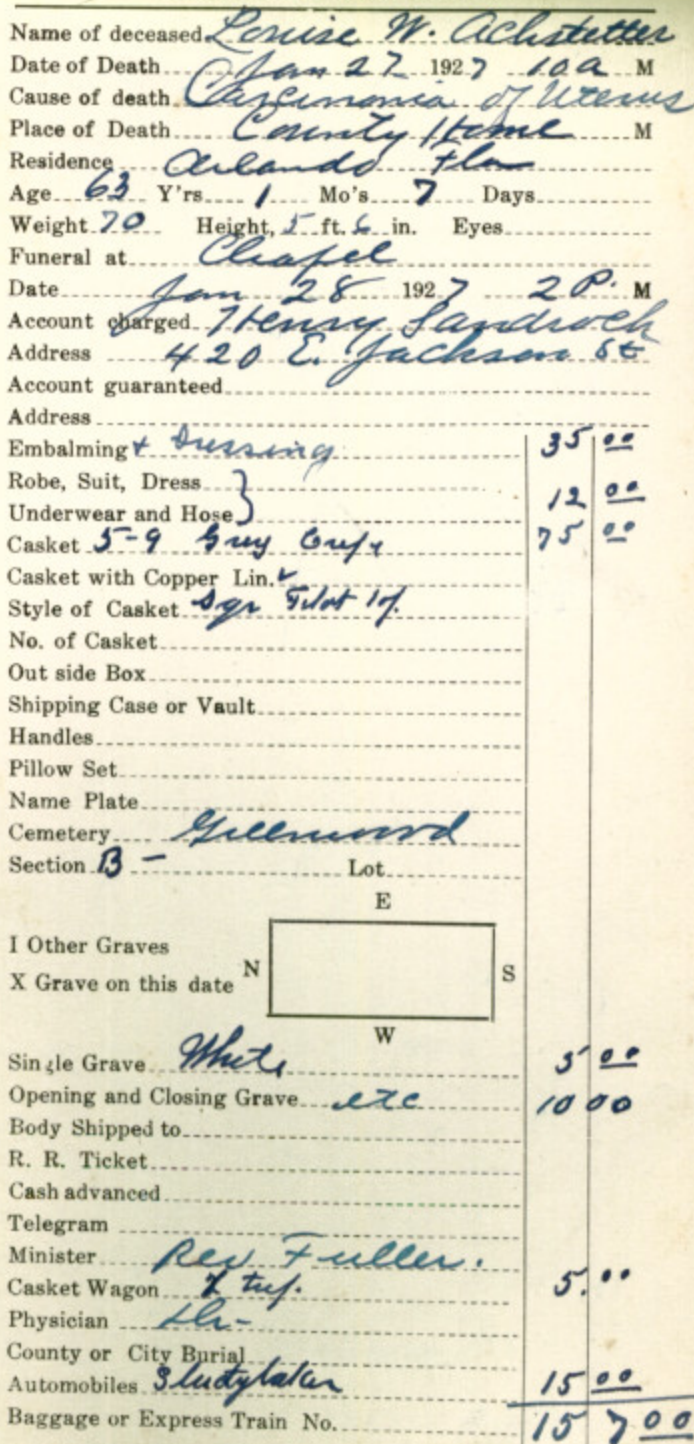 Name of deceased Louise W. Achstetter
Date of Death Jan 27 1927 10 a M
Cause of death Carcinonia of Uterus
Place of Death County Home M
Residence Orlando Fla
Age 63 Y'rs 1 Mo's 7 Days
Weight 70 Height, 5 ft. 6 in. Eyes
Funeral at Chapel
Date Jan 28 1927 2 P. M
Account charged Henry Sandrock
Address 420 E. Jackson St
Account guaranteed
Address
Embalming + Dressing 35 00
Robe, Suit, Dress
Underwear and Hose 12 00
Casket 5-9 Grey 75 00
Casket with Copper Lin.
Style of Casket Sqr
No. of Casket
Out side Box
Shipping Case or Vault
Handles
Pillow Set
Name Plate
Cemetery Greenwood
Section B - Lot
E
I Other Graves
X Grave on this date N S
W
Single Grave White 5 00
Opening and Closing Grave etc 10 00
Body Shipped to
R. R. Ticket
Cash advanced
Telegram
Minister Rev Fuller.
Casket Wagon 5. 00
Physician Dr-
County or City Burial
Automobiles Studybaker 15 00
Baggage or Express Train No. 157 00